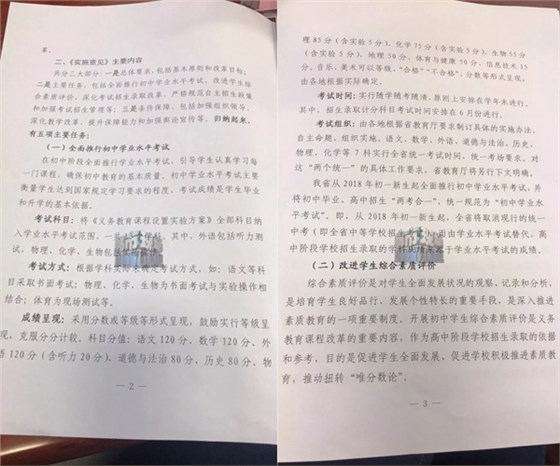 革。
二、《实施意见》主要内容
共分三大部分：一是总体要求，包括基本原则和改革目标；
二是主要任务，包括全面推行初中学业水平考试、改进学生综
合素质评价、深化考试招生录取改革、严格规范自主招生政策
和加强考试招生管理等；三是条件保障，包括加强组织领导、
深化教学改革、提升保障能力和加强舆论宣传等。归纳起来，
有五项主要任务：
（一）全面推行初中学业水平考试
在初中阶段全面推行学业水平考试，引导学生认真学习每
一门课程，确保初中教育的基本质量。初中学业水平考试主要
衡量学生达到国家规定学习要求的程度，考试成绩是学生毕业
和升学的基本依据。
考试科目：将《义务教育课程设置实验方案》全部科目纳
入学业水平考试范围，一共 学科，其中，外语包括听力测
试，物理、化学、生物包括实验
考试方式：根据学科实际来确定考试方式，如：语文等科
目采取书面考试；物理、化学、生物为书面考试与实验操作相
结合；体育为现场测试等。
成绩呈现：采用分数或等级等形式呈现，鼓励实行等级呈
现，克服分分计较。科目分值：语文 120 分、数学 120 分、外
语 120 分（含听力 20 分）、道德与法治 80 分、历史 80 分、物
— 2 —
理 85 分（含实验 5 分）、化学 75 分（含实验 5 分）、生物 55 分
（含实验 5 分）、地理 50 分、体育与健康 50 分、信息技术 15
分，音乐、美术可以等级、“合格”“不合格”、分数等形式呈现，
由各地根据实际确定。
考试时间：实行随学随考随清，原则上安排在学年末进行。
其中，招生录取计分科目考试时间安排在 6 月份进行。
考试组织：由各地根据省教育厅要求制订具体的实施办法，
自主命题、组织实施，语文、数学、外语、道德与法治、历史、
物理、化学等 7 科实行全省统一考试时间、统一考场要求，对
这“两个统一”的具体工作要求，省教育厅将另行下文明确。
我省从 2018 年初一新生起全面推行初中学业水平考试，并
将初中毕业、高中招生“两考合一”，统一规范为“初中学业水
平考试”。即，从 2018 年初一新生起，全省将取消现行的统一
中考（即全省中等学校招生 ），而由学业水平考试替代。高
中阶段学校招生录取的学科成绩来源于学业水平考试的成绩。
（二）改进学生综合素质评价
综合素质评价是对学生全面发展状况的观察、记录和分析，
是培育学生良好品行、发展个性特长的重要手段，是深入推进
素质教育的一项重要制度。开展初中学生综合素质评价是义务
教育课程改革的重要内容，作为高中阶段学校招生录取的依据
和参考，目的是促进学生全面发展、促进学校积极推进素质教
育，推动扭转“唯分数论”。
— 3 —